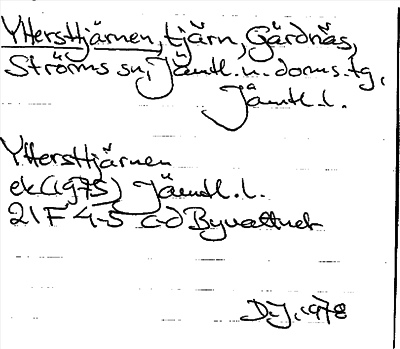 Yttersttjärnen, tjärn, Gärdnäs,
Ströms sn, Jämtl. n. doms. tg,
Jämtl. l.
Yttersttjärnen
ek (1975) Jämtl. l.
21F 4-5 c-d Byvattnet
D.J. 1978